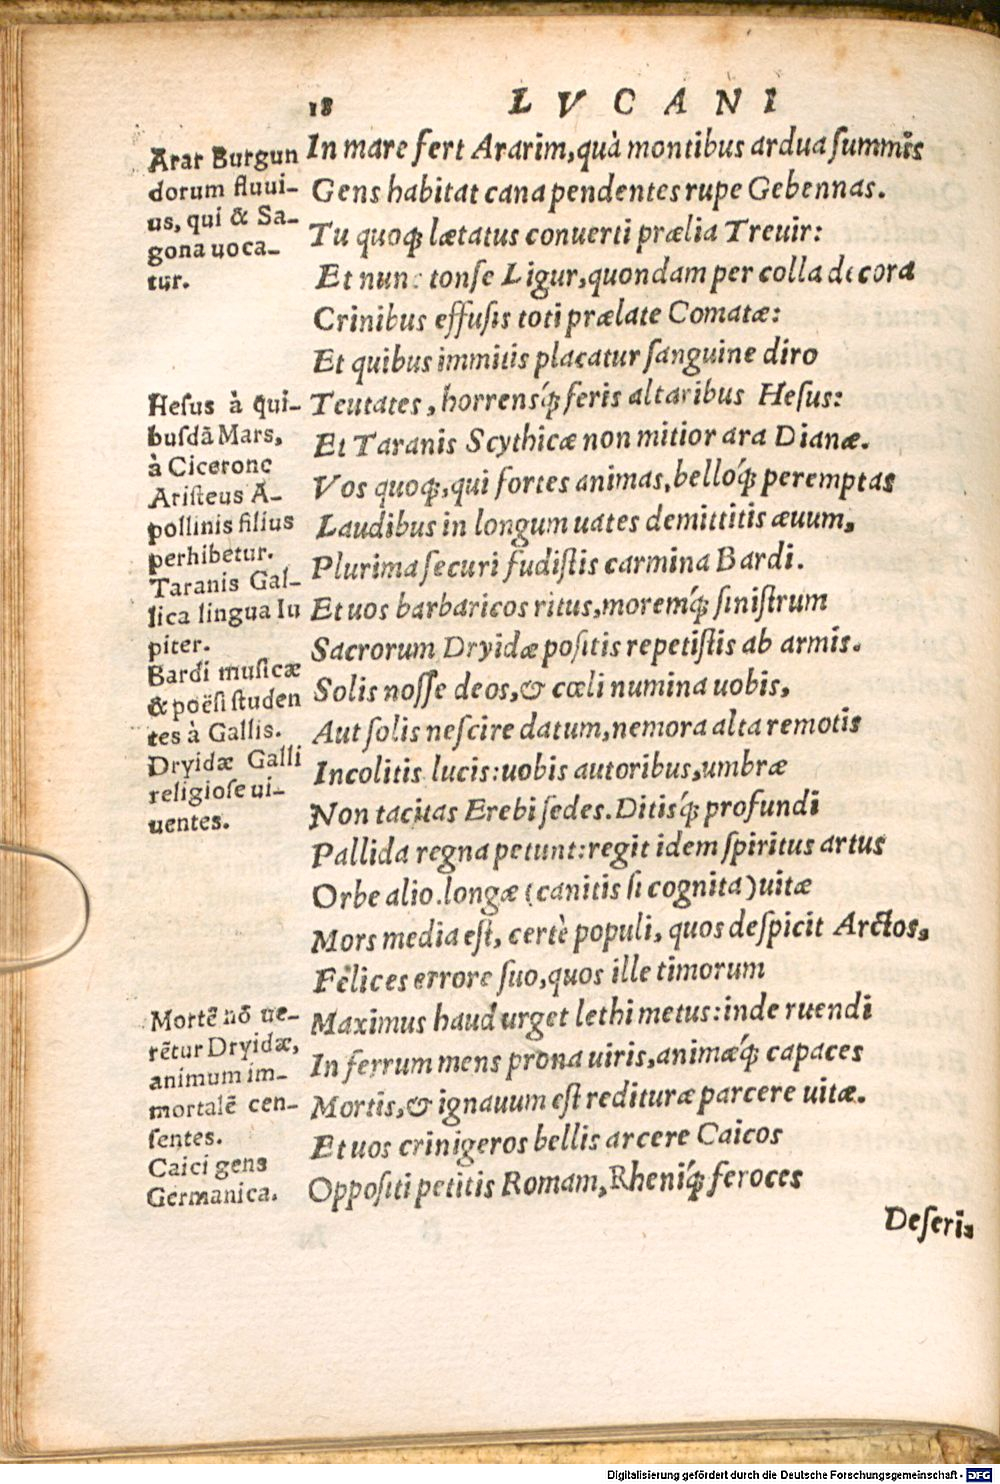 18 LVCANI
Arar Burgun
dorum fluui-
us, qui & Sa-
gona uoca-
tur.
In mare fert Ararim, quà montibus ardua summis
Gens habitat cana pendentes rupe Gebennas.
Tu quoq; lætatus conuerti prælia Treuir:
Et nunc tonse Ligur, quondam per colla decora
Crinibus effusis toti prælate Comatæ:
Et quibus immitis placatur sanguine diro
Hesus à qui-
busdā Mars,
à Cicerone
Aristeus A-
pollinis filius
perhibetur.
Taranis Gal-
lica lingua Iu
piter.
Bardi musicæ
& poësi studen
tes à Gallis.
Dryidæ Galli
religiose ui-
uentes.
Teutates, horrensq́; feris altaribus Hesus:
Et Taranis Scythicæ non mitior ara Dianæ.
Vos quoq;, qui fortes animas, belloq́; peremptas
Laudibus in longum uates demittitis æuum,
Plurima securi fudistis carmina Bardi.
Et uos barbaricos ritus, moremq́; sinistrum
Sacrorum Dryidæ positis repetistis ab armis.
Solis nosse deos, & cœli numina uobis,
Aut solis nescire datum, nemora alta remotis
Incolitis lucis: uobis autoribus, umbræ
Non tacitas Erebi sedes. Ditisq́; profundi
Pallida regna petunt: regit idem spiritus artus
Orbe alio. longæ (canitis si cognita) uitæ
Mors media est, certè populi, quos despicit Arctos,
Felices errore suo, quos ille timorum
Mortē nō ue-
rētur Dryidæ,
animum im-
mortalē cen-
sentes.
Caici gens
Germanica.
Maximus haud urget lethi metus: inde ruendi
In ferrum mens prona uiris, animæq́; capaces
Mortis, & ignauum est redituræ parcere uitæ.
Et uos crinigeros bellis arcere Caicos
Oppositi petitis Romam, Rheniq́; feroces
Deseri-
Digitalisierung gefördert durch die Deutsche Forschungsgemeinschaft - DFG